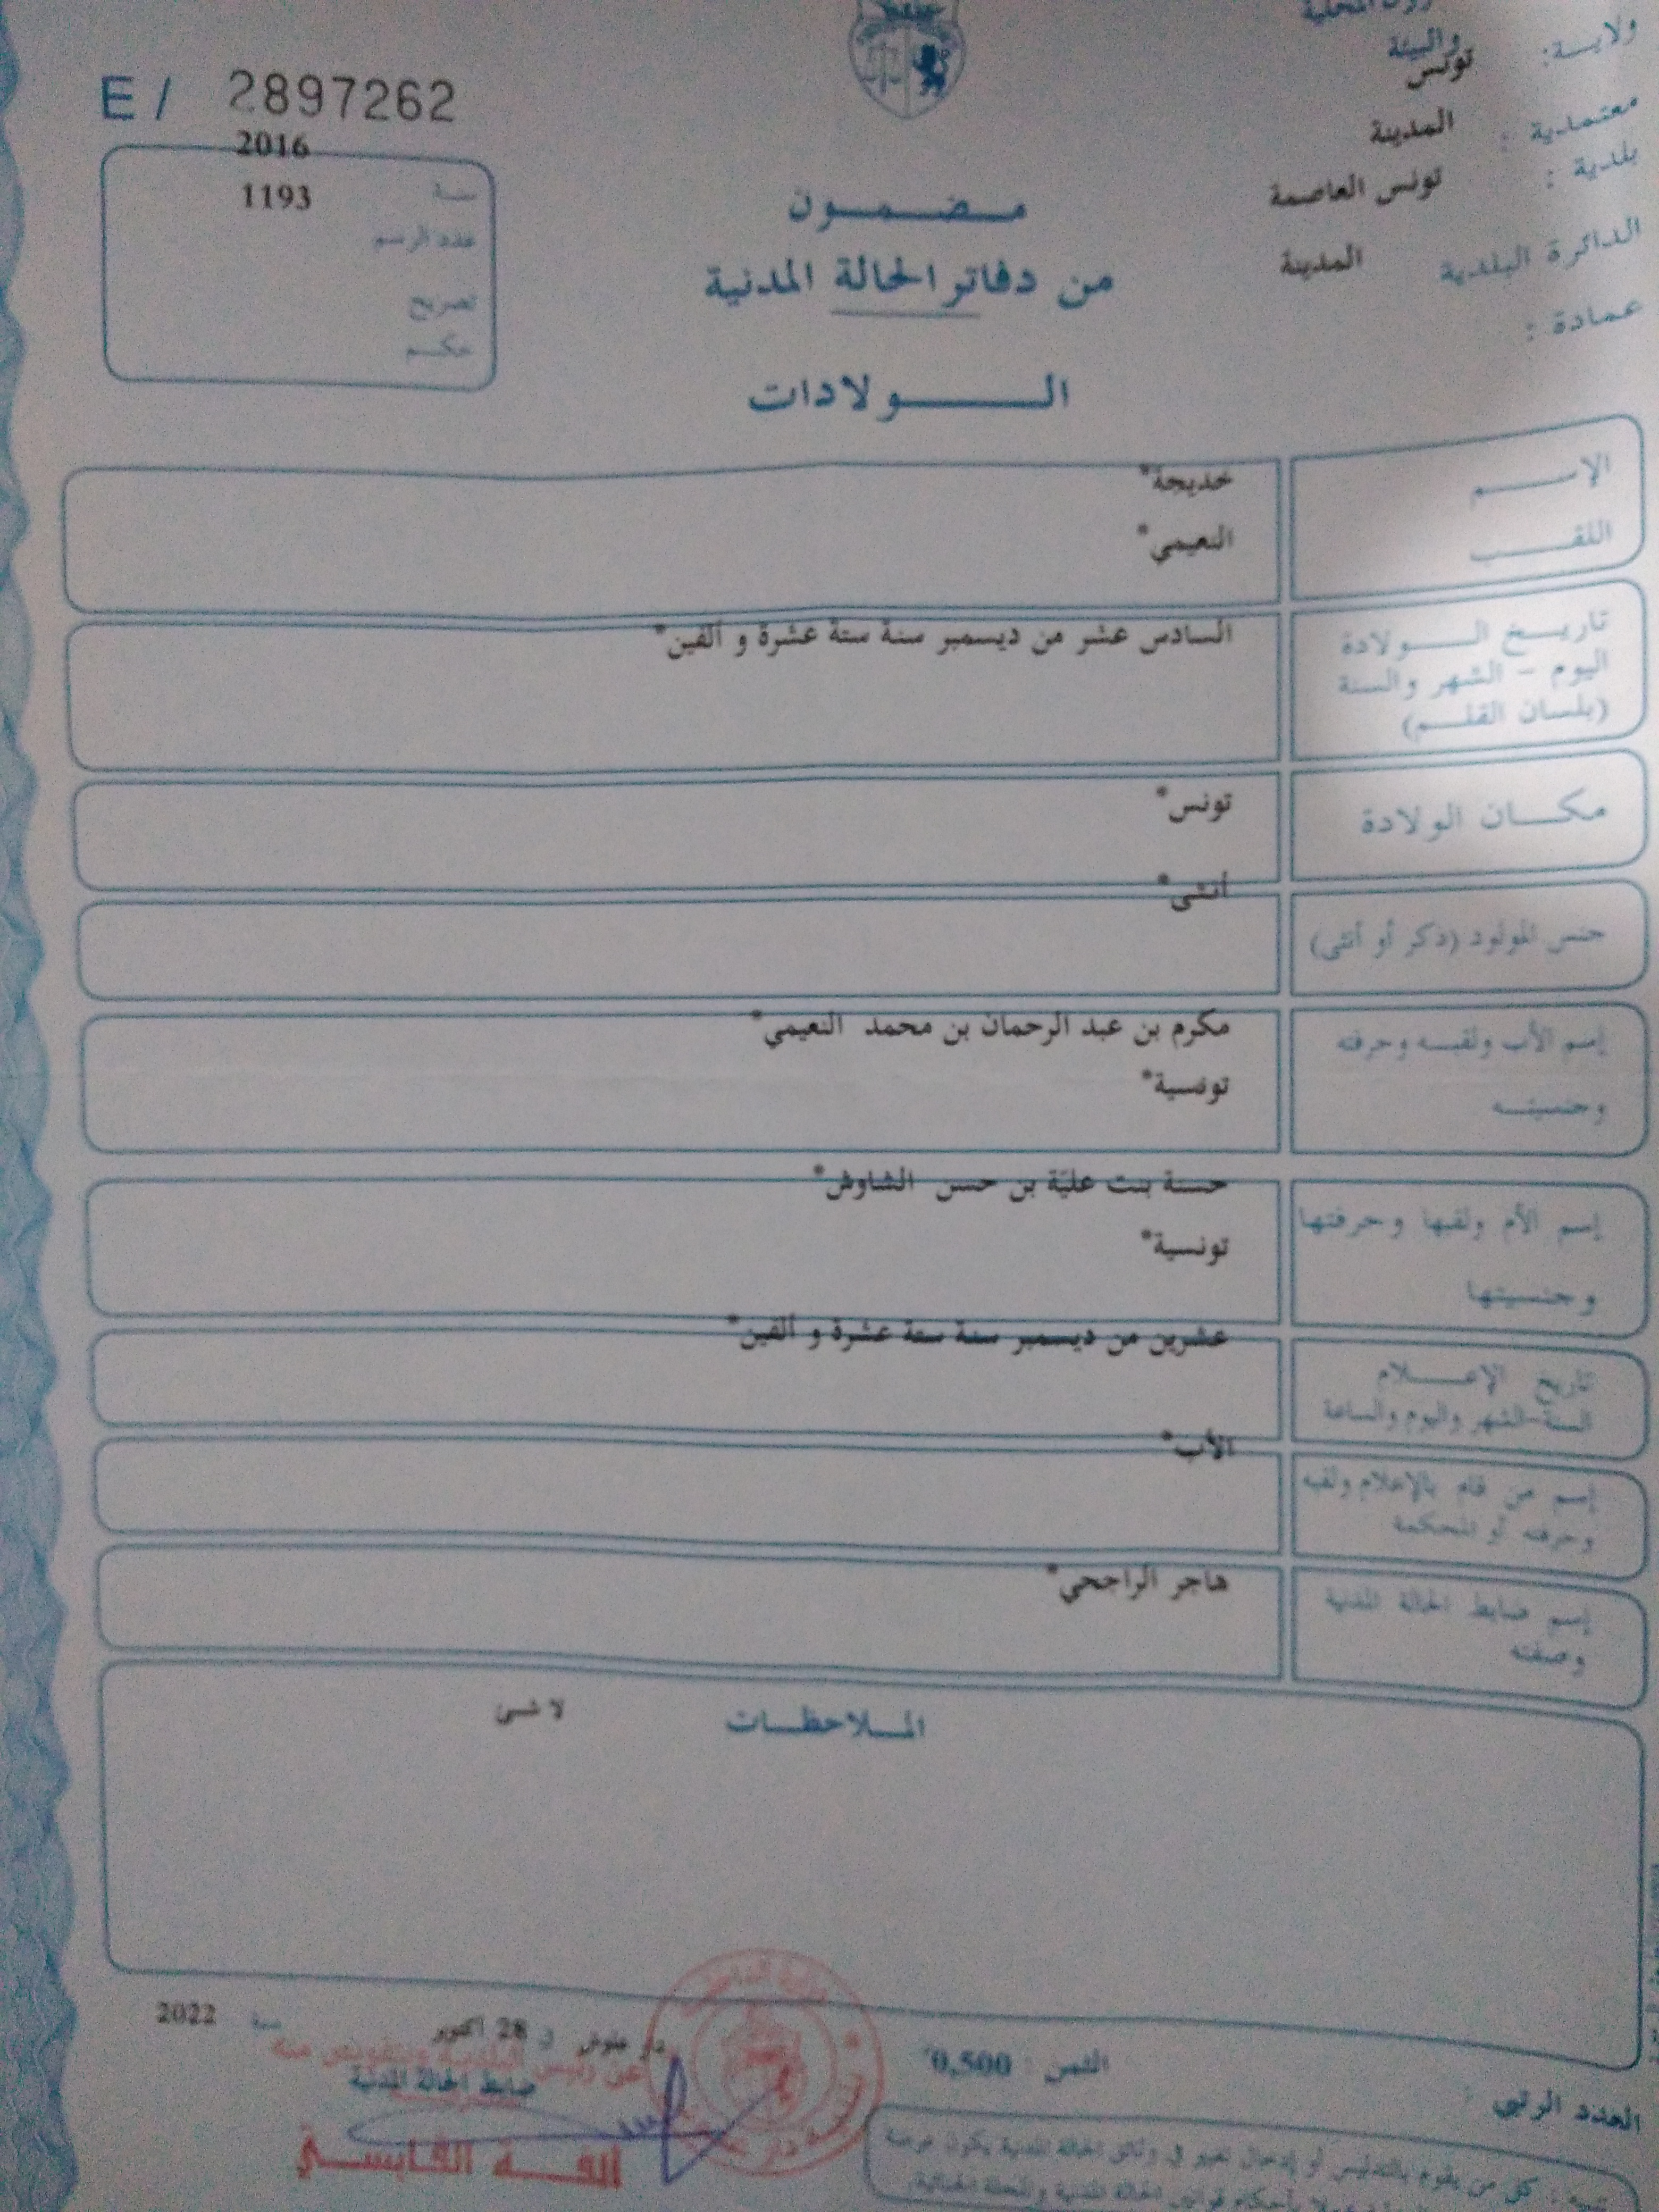 والبيئة
ولايـة:
تونس
معتمدية :
المدينة
بلدية :
تونس العاصمة
الدائرة البلدية
المدينة
عمادة :
E / 2897262
2016
سنة
1193
عدد الرسم
تصريح
حكم
مـضـمـون
من دفاتر الحالة المدنية
الـولادات
الإسـم
خديجة*
اللقـب
النعيمي*
تاريـخ الـولادة
اليوم - الشهر والسنة
(بلسان القلـم)
السادس عشر من ديسمبر سنة ستة عشرة و ألفين*
مكـان الولادة
تونس*
جنس المولود (ذكر أو أنثى)
أنثى*
إسم الأب ولقبـه وحرفته
وجنسيتـه
مكرم بن عبد الرحمان بن محمد النعيمي*
تونسية*
إسم الأم ولقبها وحرفتها
وجنسيتها
حسنة بنت عليّة بن حسن الشاوش*
تونسية*
تاريخ الإعـلام
السنة-الشهر واليوم والساعة
عشرين من ديسمبر سنة ستة عشرة و ألفين*
إسم من قام بالإعلام ولقبه
وحرفته أو المحكمة
الأب*
إسم ضابط الحالة المدنية
وصفته
هاجر الراجحي*
المـلاحظـات
لا شئ
28 أكتوبر
سنة
2022
ضابط الحالة المدنية
الثمن : 0,500
العدد الرتبي :
ألفـة القابسـي
كل من يقوم بالتدليس أو إدخال تغيير في وثائق الحالة المدنية يكون عرضة